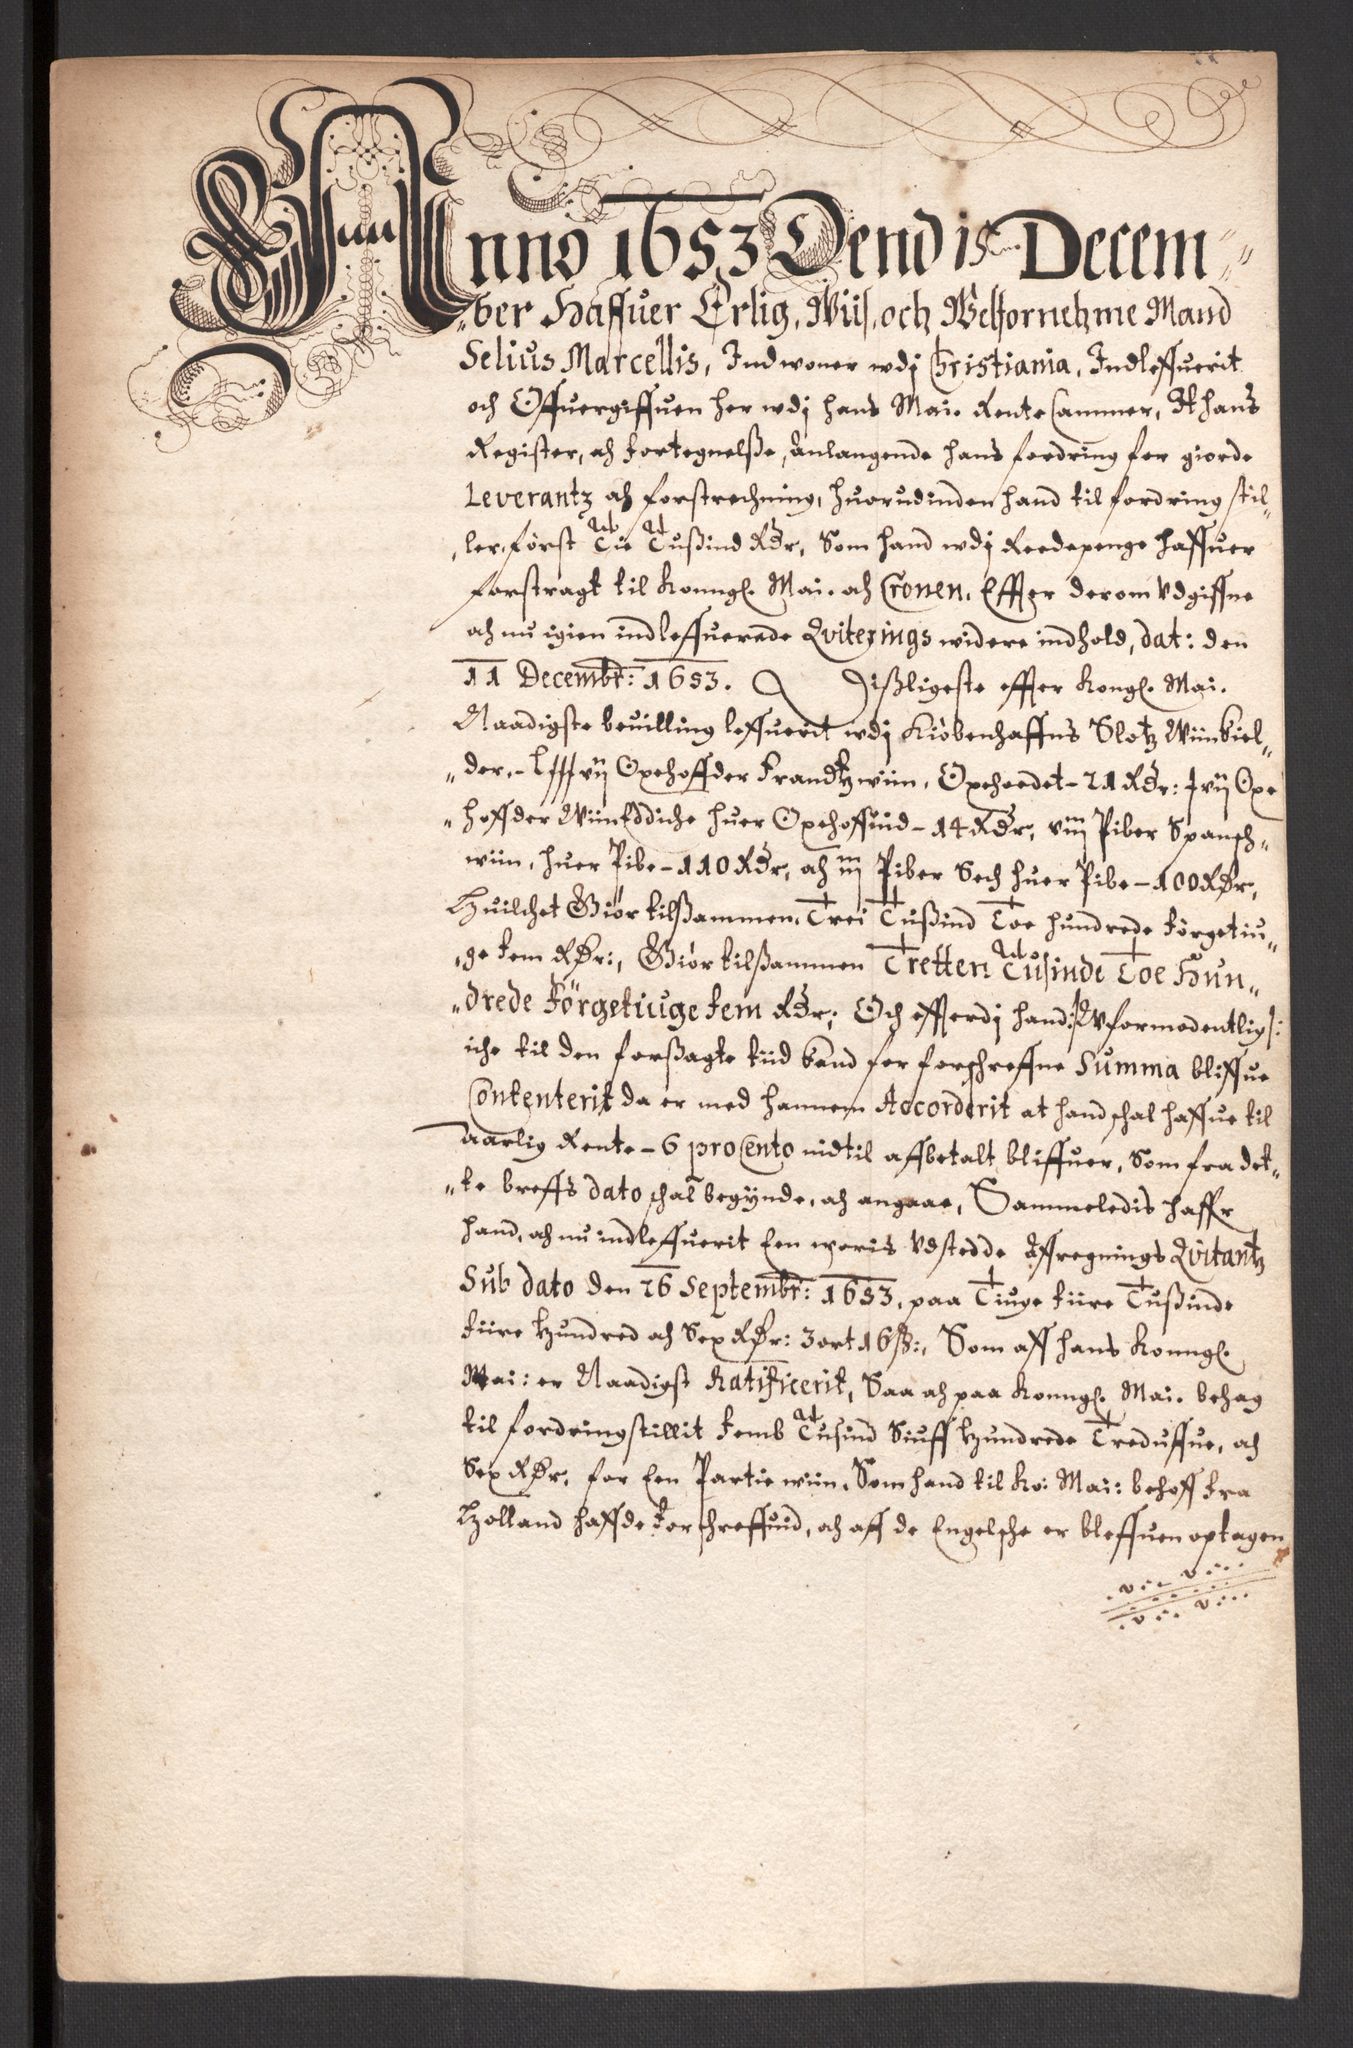 Anno 1653 Dend 15 Decem=
=ber Haffuer Erlig, Wiis, och Welfornehme Mand
Selius Marcellis, Indwoner wdj Christiania, Indleffuerit
och Offuergiffuen her wdj hans Mai. Rente Cammer, Et hans
Register, och Fortegnelsse, Anlangende hans fordring for giorde
Leverantz och forstrechning, huorudinden hand til fordring stil=
=ler, først Tie Tussind Rdr, Som hand wdj Reedepenge haffuer
forstragt til Konngl. Mai. och Cronen, Effter derom Vdgiffne
och nu igien indleffuerede Qviterings widere indhold, dat: den
11 Decembr: 1653. Dissligeste effter Kongl. Mai.
Naadigste beuilling leffuerit wdj Kiøbenhaffns Slotz Wiinkiel=
=der, Oxehoffder Frandtzwiin, Oxehoedet - 21 Rdr: Oxe
=hoffder Wiineddiche huer Oxehoffuid - 14 Rdr, viij Piber Spansch=
wiin, huer Pibe - 110 Rdr, och iij Piber Sech huer Pibe - 100 Rdr,
Huilchet Giør tilsammen, Trei Tussind Toe hundrede Førgetiu=
=ge Fem Rdr:, Giør tilsammen Tretten Tusinde Toe Hun=
=drede Førgetiuge Fem Rdr; Och effterdj hand /: Wformodentlig :/
iche til den forsagte tiid kand for forschreffne Summa bliffue
Contenterit da er med hannem Accorderit at hand schal haffue til
aarlig Rente - 6 pro Cento indtil affbetalt bliffuer, Som fra det=
=te breffs dato schal begynde, och angaae, Sammeledis haffr
hand, och nu indleffuerit Een woris Vdstedde Affregnings Qvitantz
Sub dato den 26 Septembr: 1653, paa Tiuge Fiire Tussinde
Fiire Hundred och Sex Rdr: 3 ort 16 ß:, Som aff hans Konngl.
Mai: er Naadigst Ratificerit, Saa och paa Konngl. Mai. behag
til fordringstillit Femb Tusind Siuff Hundrede Treduffue, och
Sex Rdr, for Een Partie wiin, Som hand til Ko: Mai: behoff Fra
Holland haffde Forschreffuid, och aff de Engelsche er bleffuen optagen